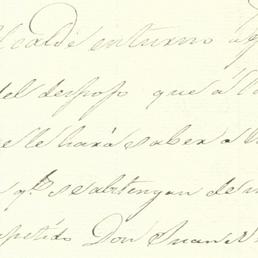 lcalde en turno
del despojo que á l
e le hará saber a l
q.e se abtengan de
petido Don Juan